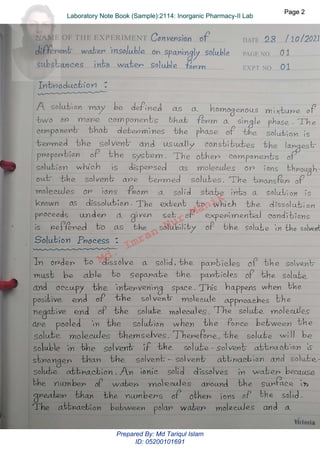 Page 2
Laboratory Note Book (Sample):2114: Inorganic Pharmacy-II Lab
NAME OF THE EXPERIMENT Conversion of DATE 28 /10/2021
different water insoluble or sparingly soluble PAGE NO. 01
substances into water soluble form EXPT NO. 01
Introduction :
A solution may be defined as a homogenous mixture of
two or more components that form a single phase. The
component that determines the phase of the solution is
termed the solvent and usually constitutes the largest
proportion of the system. The other components of
solution which is dispersed as molecules or ions through-
out the solvent are termed solutes. The transfer of
molecules or ions from a solid state into a solution is
known as dissolution. The extent to which the dissolution
proceeds under a given set of experimental conditions
is reffered to as the solubility of the solute in the solvent
Solution Process :
In order to dissolve a solid, the particles of the solvent
must be able to separate the particles of the solute
and occupy the intervening space. This happens when the
positive end of the solvent molecule approaches the
negative end of the solute molecules. The solute molecules
are pooled in the solution when the force between the
solute molecules themselves. Therefore, the solute will be
soluble in the solvent if the solute-solvent attraction is
stronger than the solvent-solvent attraction and solute-
solute attraction. An ionic solid dissolves in water because
the number of water molecules around the surface is
greater than the numbers of other ions of the solid.
The attraction between polar water molecules and a
Victoria
Md. Imran Nur Manik
Prepared By: Md Tariqul Islam
ID: 05200101691